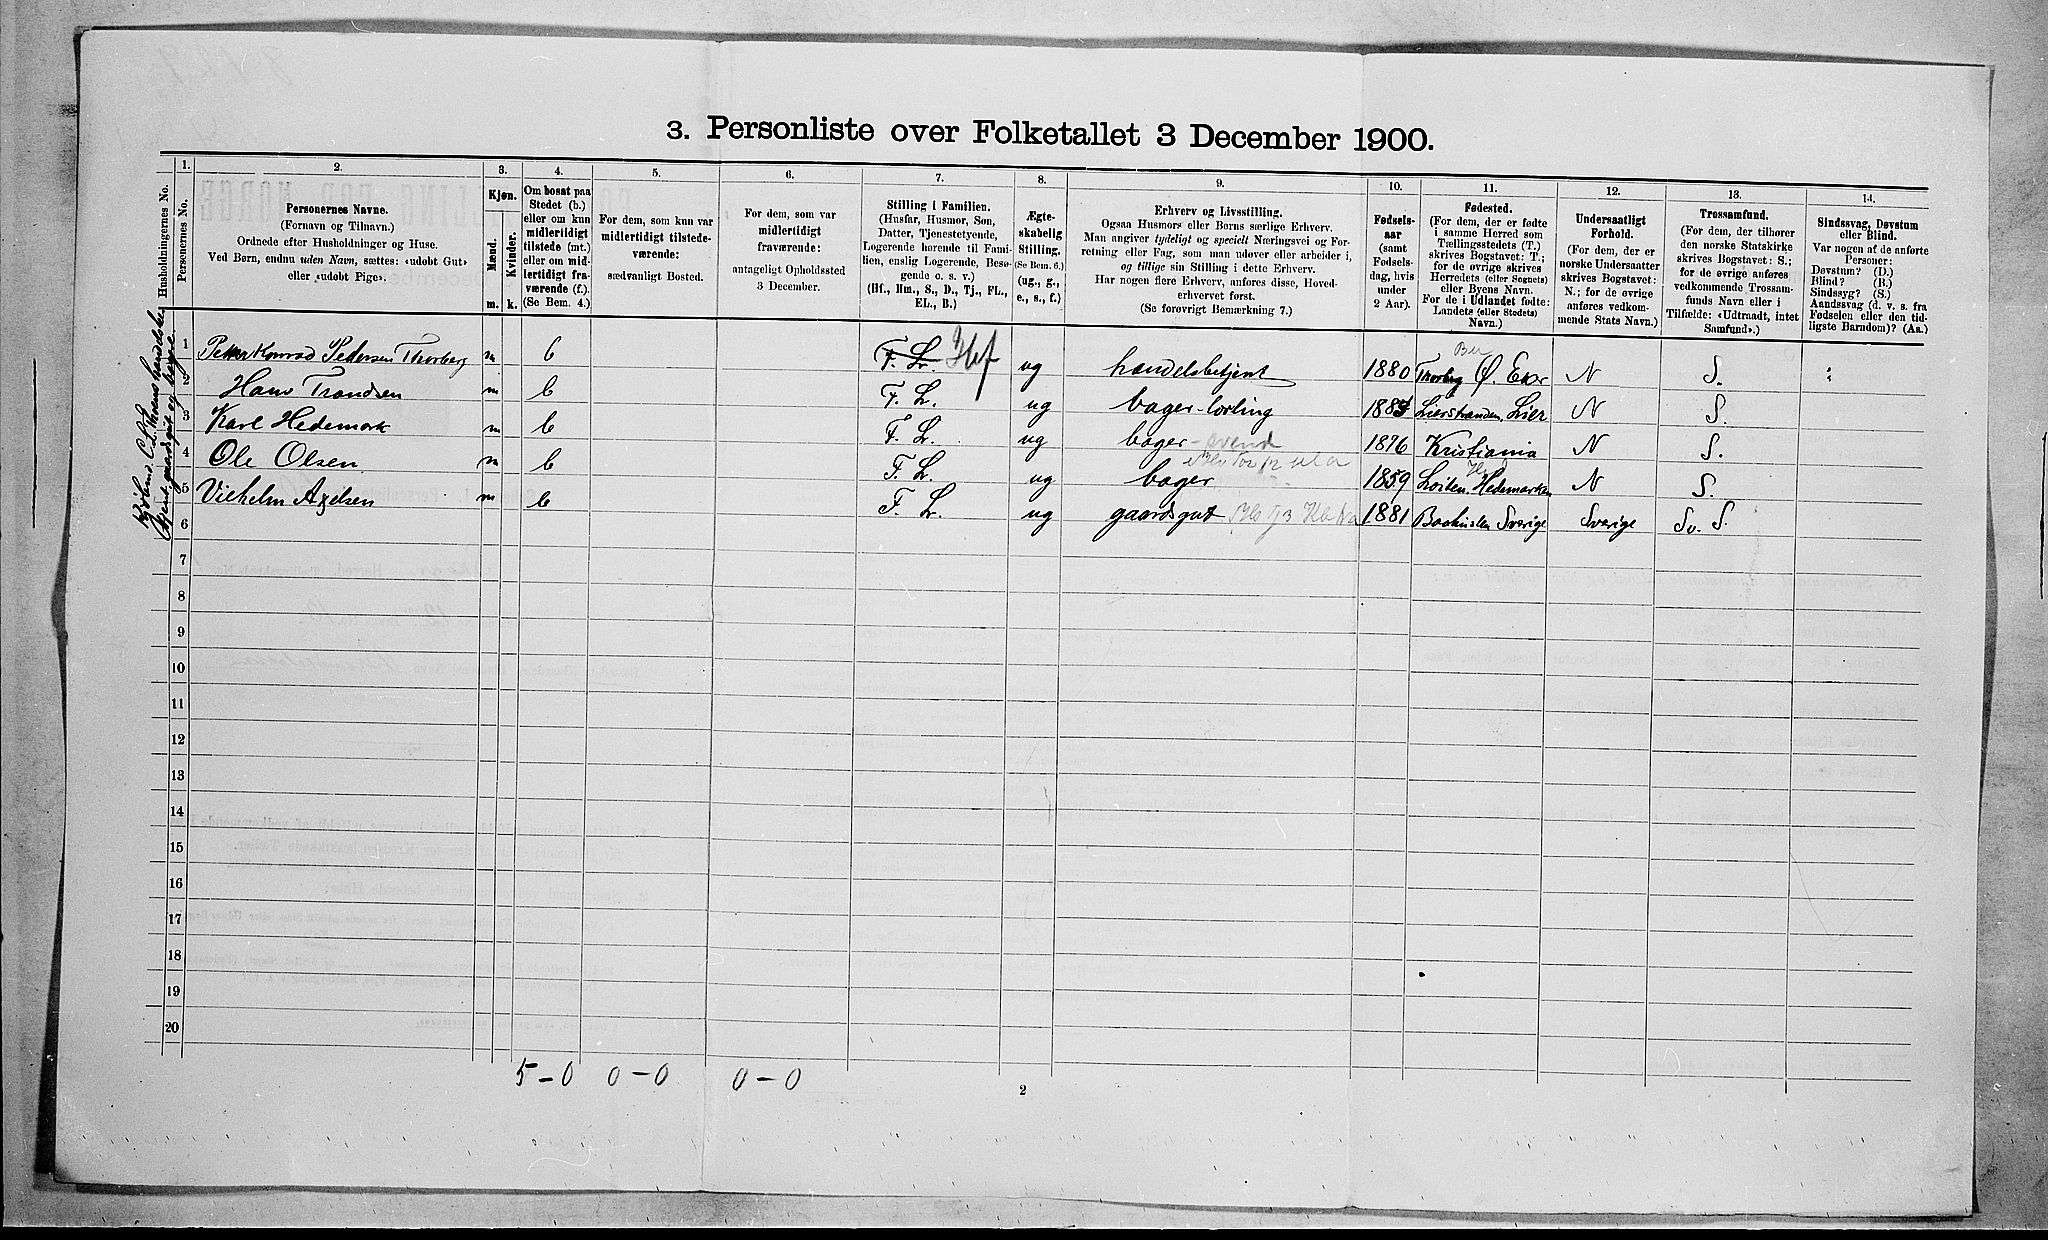 3. Personliste over Folketallet 3 December 1900.
1. 2. 3. 4. 5. 6. 7. 8. 9. 10. 11. 12. 13. 14.
Husholdningernes No.
Personernes No.
Personernes Navne.
(Fornavn og Tilnavn.)
Ordnede efter Husholdninger og Huse.
Ved Børn, endnu uden Navn, sættes: «udøbt Gut»
eller «udøbt Pige».
Kjøn.
Mænd.
Kvinder.
m. k.
Om bosat paa
Stedet (b.)
eller om kun
midlertidigt
tilstede (mt.)
eller om mid-
lertidigt fra-
værende (f.).
(Se Bem. 4.)
For dem, som kun var
midlertidigt tilstede-
værende:
sædvanligt Bosted.
For dem, som var
midlertidigt
fraværende:
antageligt Opholdssted
3 December.
Stilling i Familien.
(Husfar, Husmor, Søn,
Datter, Tjenestetyende,
Logerende hørende til Fami-
lien, enslig Logerende, Besø-
gende o. s. v.)
(Hf., Hm., S., D., Tj., FL.,
EL., B.)
Ægte-
skabelig
Stilling.
(Se Bem. 6.)
(ug., g.,
e., s., f.)
Erhverv og Livsstilling.
Ogsaa Husmors eller Børns særlige Erhverv.
Man angiver tydeligt og specielt Næringsvei og For-
retning eller Fag, som man udøver eller arbeider i,
og tillige sin Stilling i dette Erhverv.
Har nogen flere Erhverv, anføres disse, Hoved-
erhvervet først.
(Se forøvrigt Bemærkning 7.)
Fødsels-
aar
(samt
Fødsels-
dag, hvis
under
2 Aar).
Fødested.
(For dem, der er fødte
i samme Herred som
Tællingsstedets (T.)
skrives Bogstavet: T.;
for de øvrige skrives
Herredets (eller Sognets)
eller Byens Navn.
For de i Udlandet fødte:
Landets (eller Stedets)
Navn.)
Undersaatligt
Forhold.
(For dem, der er
norske Undersaatter
skrives Bogstavet:
N.; for de øvrige
anføres vedkom-
mende Stats Navn.)
Trossamfund.
(For dem, der tilhører
den norske Statskirke
skrives Bogstavet: S.;
for de øvrige anføres
vedkommende Trossam-
funds Navn eller i
Tilfælde: «Udtraadt, intet
Samfund».)
Sindssvag, Døvstum
eller Blind.
Var nogen af de anførte
Personer:
Døvstum? (D.)
Blind? (B.)
Sindssyg? (S.)
Aandssvag (d. v. s. fra
Fødselen eller den tid-
ligste Barndom)? (Aa.)
1 Petter Konrad Pedersen Thorberg m b F. L. Hf ug handelsbetjent 1880 Ø. Eker N S.
2 Hans Trondsen m b F. L. ug bager-lærling Lierstranden, Lier N S.
3 Karl Hedemark m b F. L. ug bager-svend 1876 Kristiania N S.
4 Ole Olsen m b F. L. ug bager 1859 Løiten, Hedemarken N S.
5 Vilhelm Axelsen m b F. L. ug gaardsgut 1881 Baahuslen Sverige Sverige Sv. S.
6
7
8
9
10
11
12
13
14
15
16
17
18
19
20
5 - 0 0 - 0 0 - 0
2